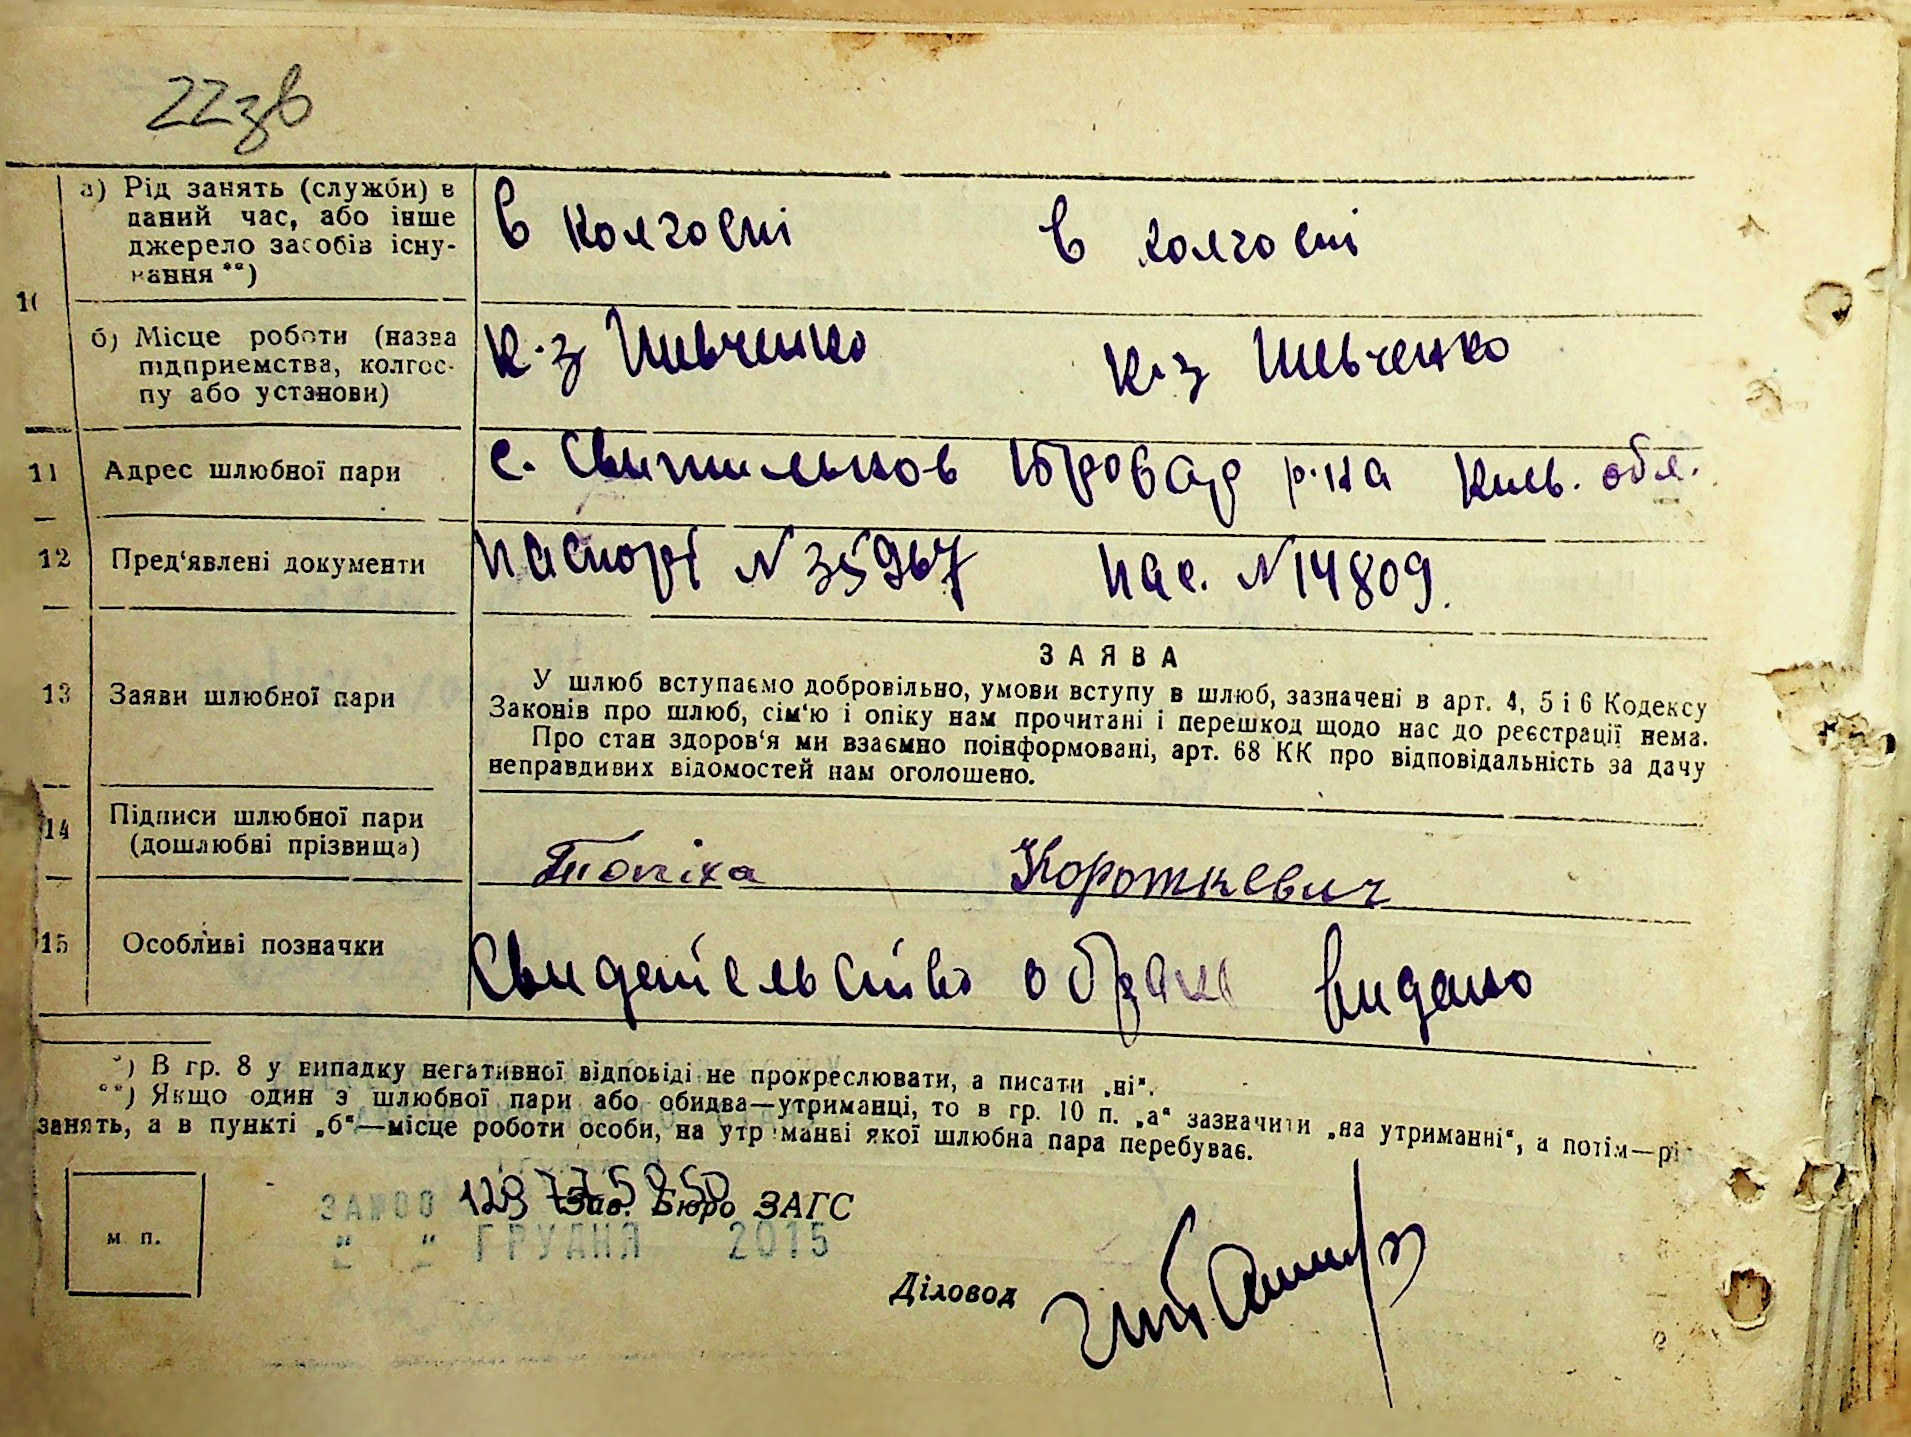 22зв
а) Рід занять (служби) в
даний час, або інше
джерело засобів існу-
вання **)
в колгоспі в колгоспі
10
б) Місце роботи (назва
підприємства, колгос-
пу або установи)
к-з Шевченко к-з Шевченко
11 Адрес шлюбної пари
с. Свитильнов Бровар р-на Киев. обл.
12 Пред'явлені документи
паспорт № 35967 пас. № 14809.
13 Заяви шлюбної пари
ЗАЯВА
У шлюб вступаємо добровільно, умови вступу в шлюб, зазначені в арт. 4, 5 і 6 Кодексу
Законів про шлюб, сім'ю і опіку нам прочитані і перешкод щодо нас до реєстрації нема.
Про стан здоров'я ми взаємно поінформовані, арт. 68 КК про відповідальність за дачу
неправдивих відомостей нам оголошено.
14 Підписи шлюбної пари
(дошлюбні прізвища)
Топіха Короткевич
15 Особливі позначки
Свидетельство о браке видано
*) В гр. 8 у випадку негативної відповіді не прокреслювати, а писати „ні“.
**) Якщо один з шлюбної пари або обидва—утриманці, то в гр. 10 п. „а“ зазначити „на утриманні“, а потім—рі
занять, а в пункті „б“—місце роботи особи, на утриманні якої шлюбна пара перебуває.
Зав. Бюро ЗАГС
м. п.
ГРУДНЯ 2015
Діловод